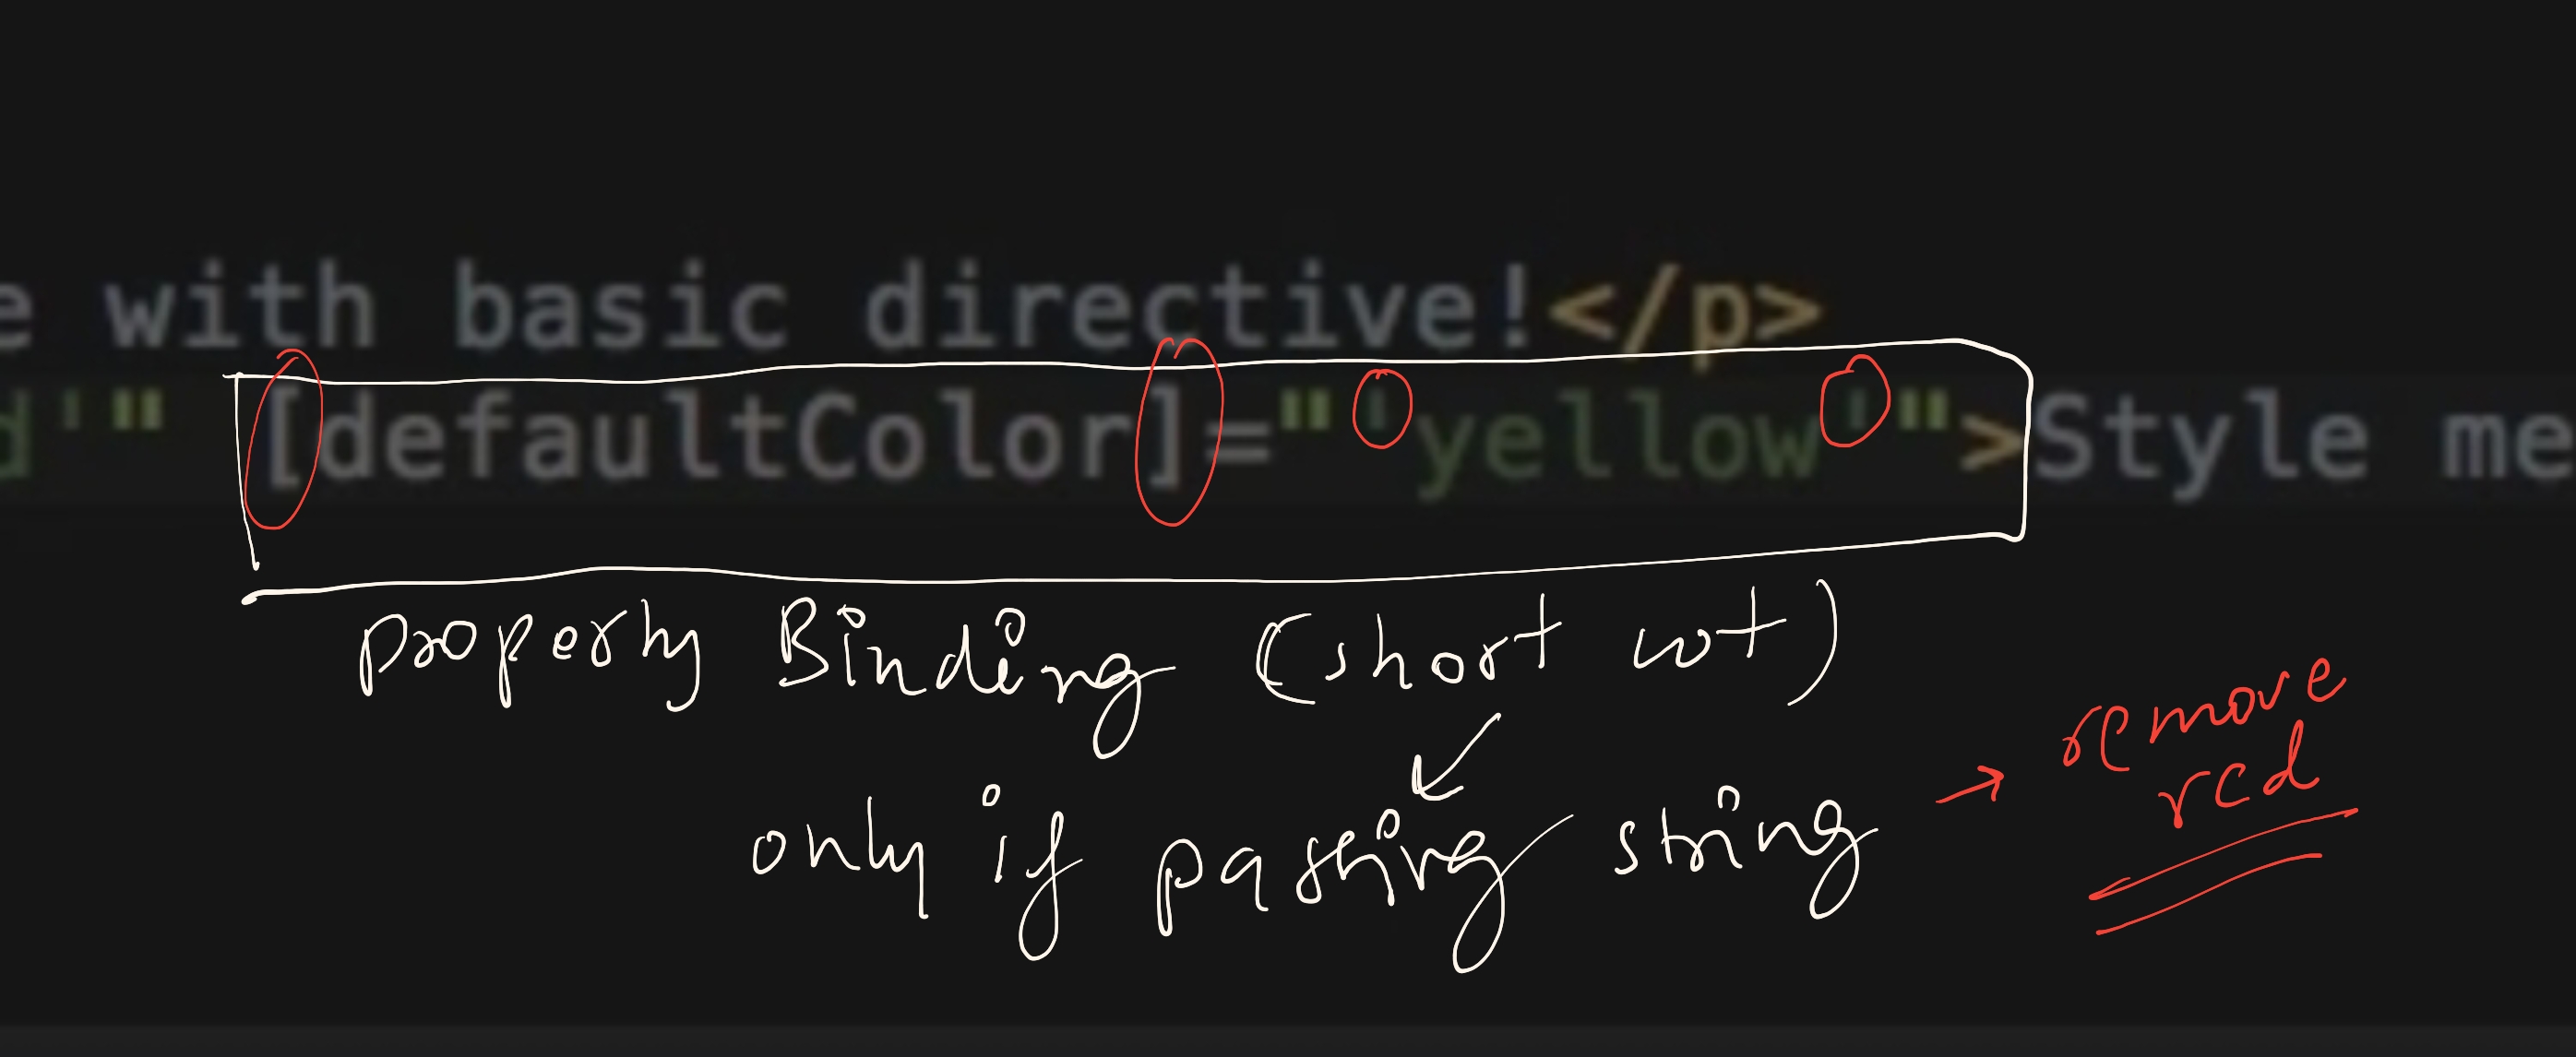 e with basic directive!</p>
d'" [defaultColor]="'yellow'">Style me
Property Binding (short cut)
only if passing string → remove
red